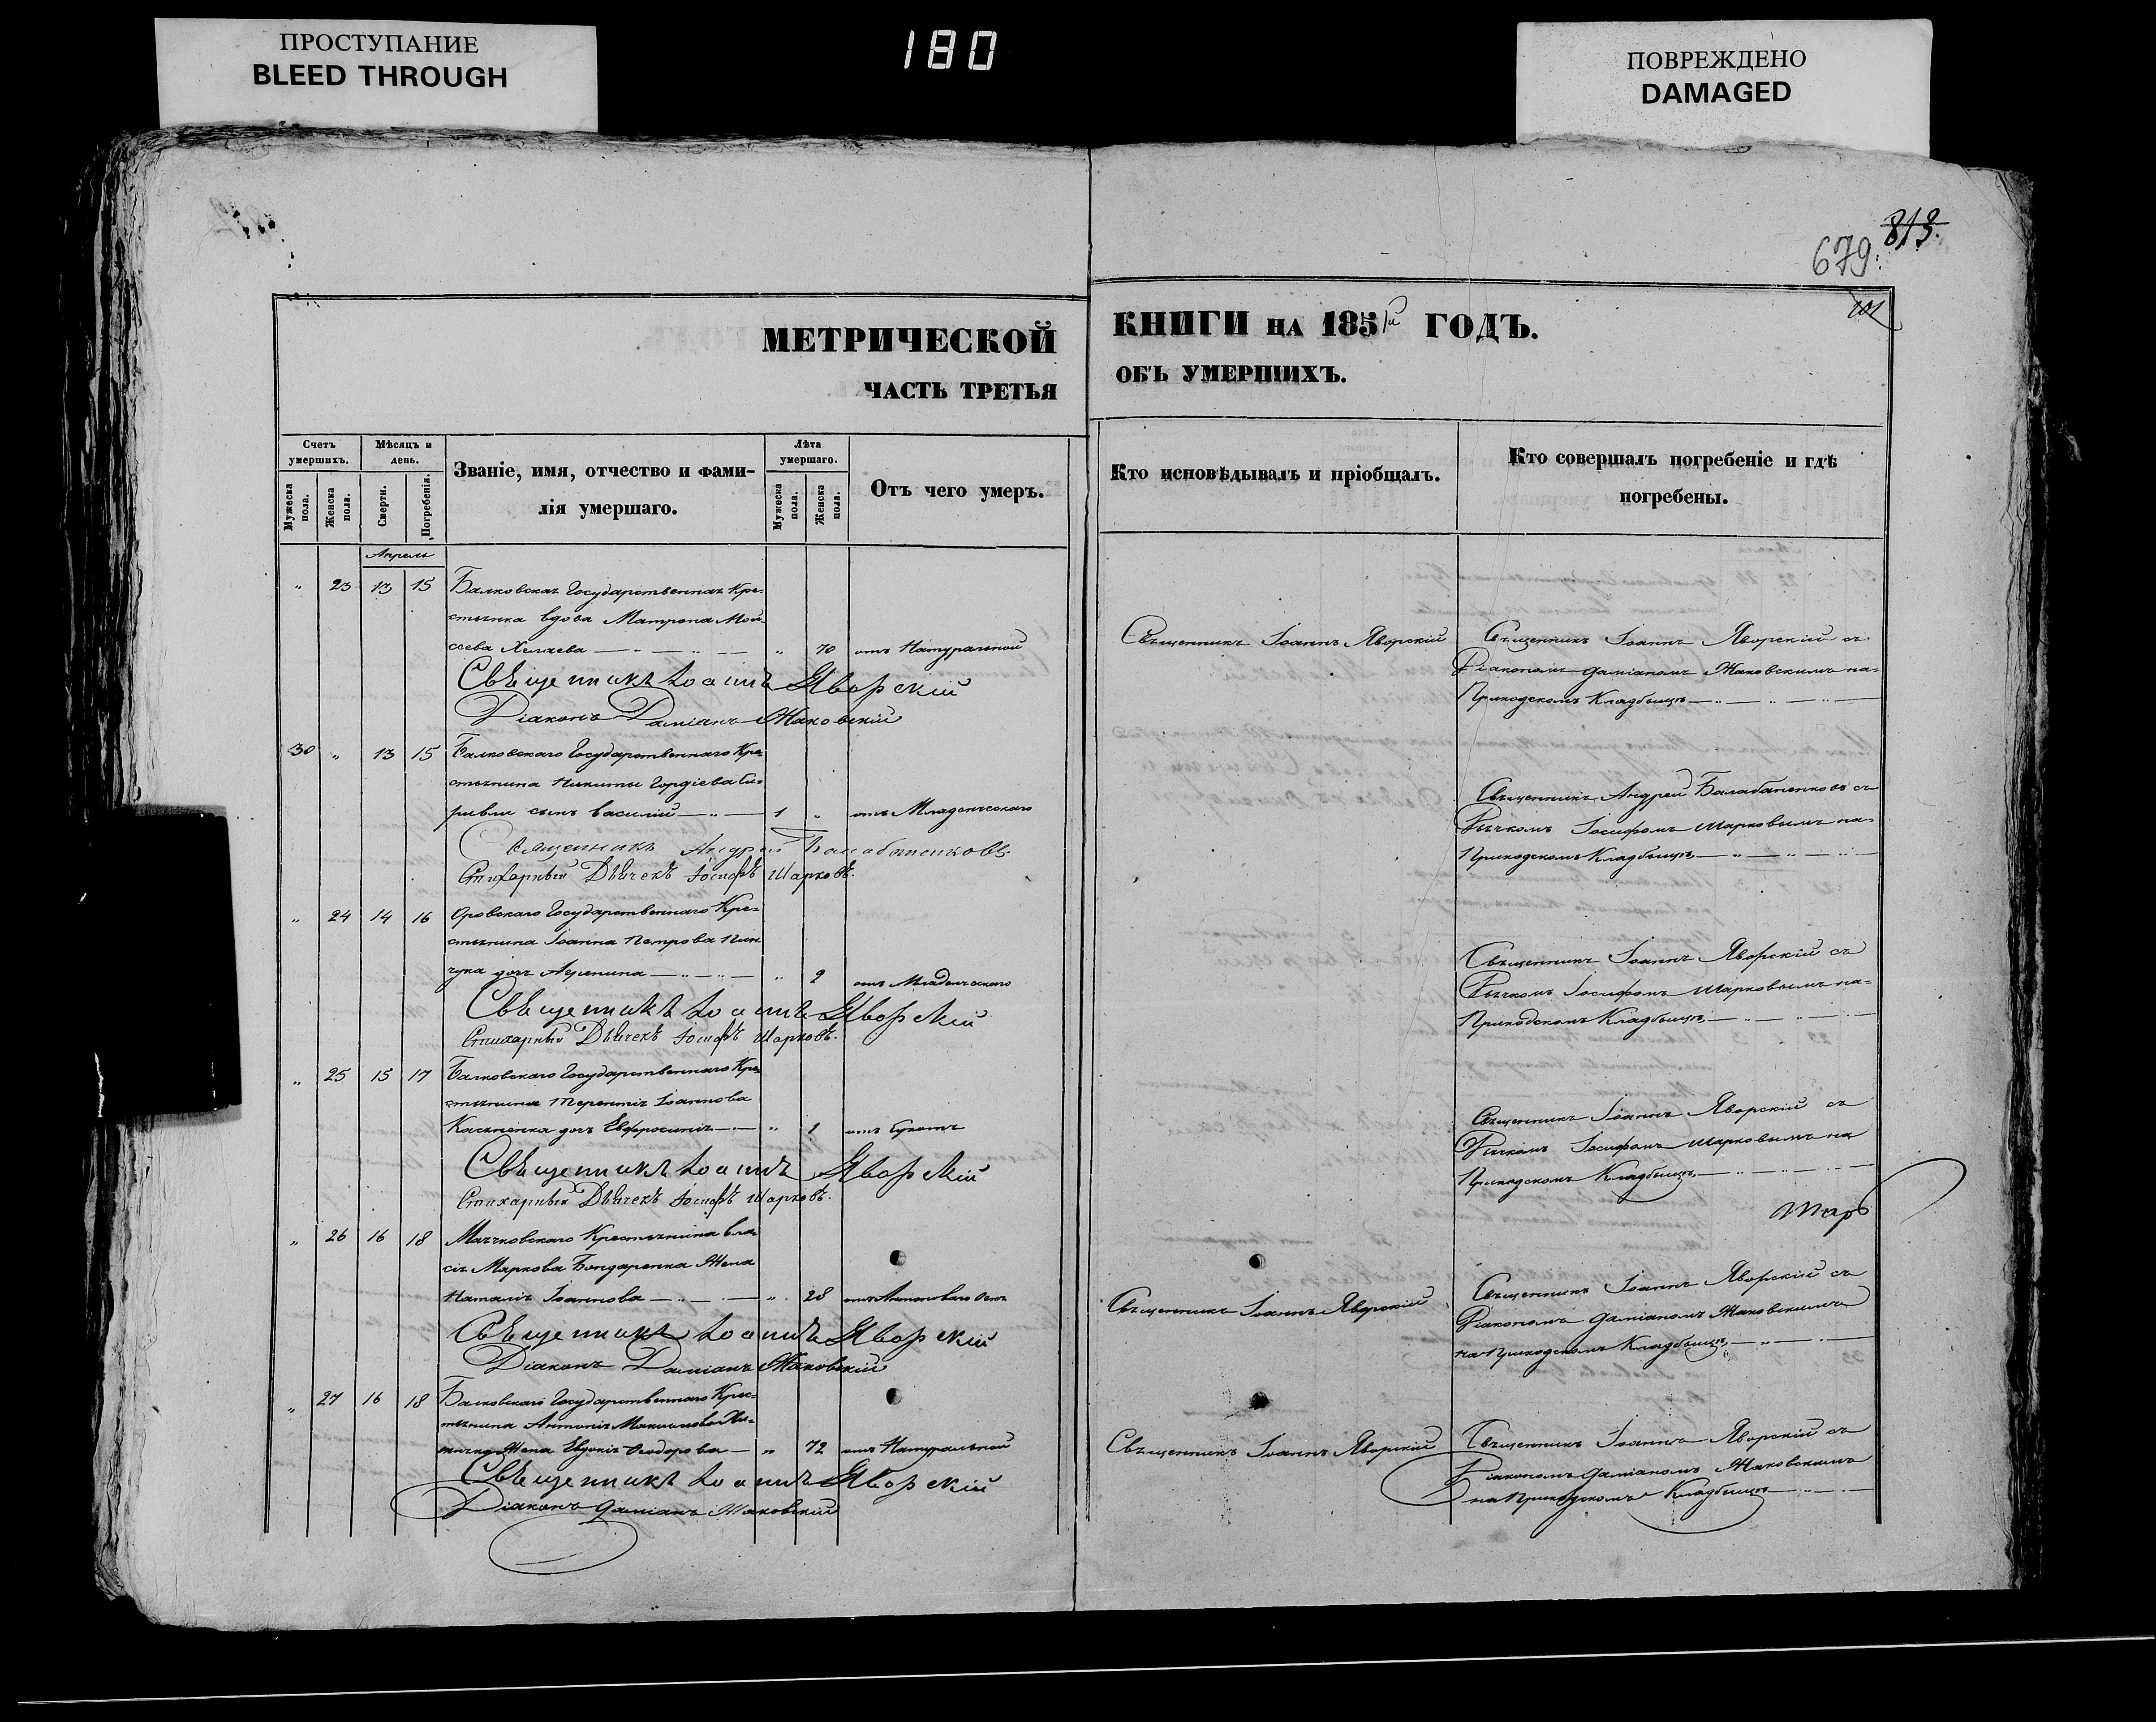 ПРОСТУПАНИЕ
BLEED THROUGH
180
ПОВРЕЖДЕНО
DAMAGED
813.
679.
101
МЕТРИЧЕСКОЙ
ЧАСТЬ ТРЕТЬЯ
КНИГИ НА 1851й ГОДЪ.
ОБЪ УМЕРШИХЪ.
Счетъ умершихъ.
Мужеска пола.
Женска пола.
Мѣсяцъ и день.
Смерти.
Погребенія.
Званіе, имя, отчество и фами-
лія умершаго.
Лѣта умершаго.
Мужеска пола.
Женска пола.
Отъ чего умеръ.
Кто исповѣдывалъ и пріобщалъ.
Кто совершалъ погребеніе и гдѣ
погребены.
Апрель
" 23 13 15 Балковская Государственная Кре-
стьянка вдова Матрона Мой-
сеева — " 70 отъ Натуральной
Священникъ Іоаннъ Яворскій
Священникъ Іоаннъ Яворскій съ
Діакономъ Даміаномъ Жаковскимъ на-
Приходскомъ Кладбищѣ
Священникъ Іоаннъ Яворскій
Діаконъ Даміанъ Жаковскій
30 " 13 15 Балковскаго Государственнаго Кре-
стьянина Никиты Гордіева
сынъ Василій — 1 " отъ Младенческаго
Священникъ Андрей Балабаненковъ съ
Дьячкомъ Іосифомъ Шарковымъ на-
Приходскомъ Кладбищѣ
Священникъ Андрей Балабаненковъ
Стихарный Дьячекъ Іосифъ Шарковъ.
" 24 14 16 Оровскаго Государственнаго Кре-
стьянина Іоанна Петрова Пин-
чука дочь — " 2 отъ Младенческаго
Священникъ Іоаннъ Яворскій съ
Дьячкомъ Іосифомъ Шарковымъ на-
Приходскомъ Кладбищѣ
Священникъ Іоаннъ Яворскій
Стихарный Дьячекъ Іосифъ Шарковъ.
" 25 15 17 Балковскаго Государственнаго Кре-
стьянина Терентія Іоаннова
Касьяненка дочь Евфросинія — " 1 отъ Сухотъ
Священникъ Іоаннъ Яворскій съ
Дьячкомъ Іосифомъ Шарковымъ на
Приходскомъ Кладбищѣ
Священникъ Іоаннъ Яворскій
Стихарный Дьячекъ Іосифъ Шарковъ.
" 26 16 18 Маячковскаго Крестьянина Вла-
сія Маркова Бондаренка Жена
Наталія Іоаннова — " 28 отъ Антонового Огня
Священникъ Іоаннъ Яворскій
Священникъ Іоаннъ Яворскій съ
Діакономъ Даміаномъ Жаковскимъ
на Приходскомъ Кладбищѣ
Священникъ Іоаннъ Яворскій
Діаконъ Даміанъ Жаковскій
" 27 16 18 Балковскаго Государственнаго Крес-
тьянина Антонія
Жена Евдокія Ѳеодорова — " 72 отъ Натуральной
Священникъ Іоаннъ Яворскій
Священникъ Іоаннъ Яворскій съ
Діакономъ Даміаномъ Жаковскимъ
на Приходскомъ Кладбищѣ
Священникъ Іоаннъ Яворскій
Діаконъ Даміанъ Жаковскій